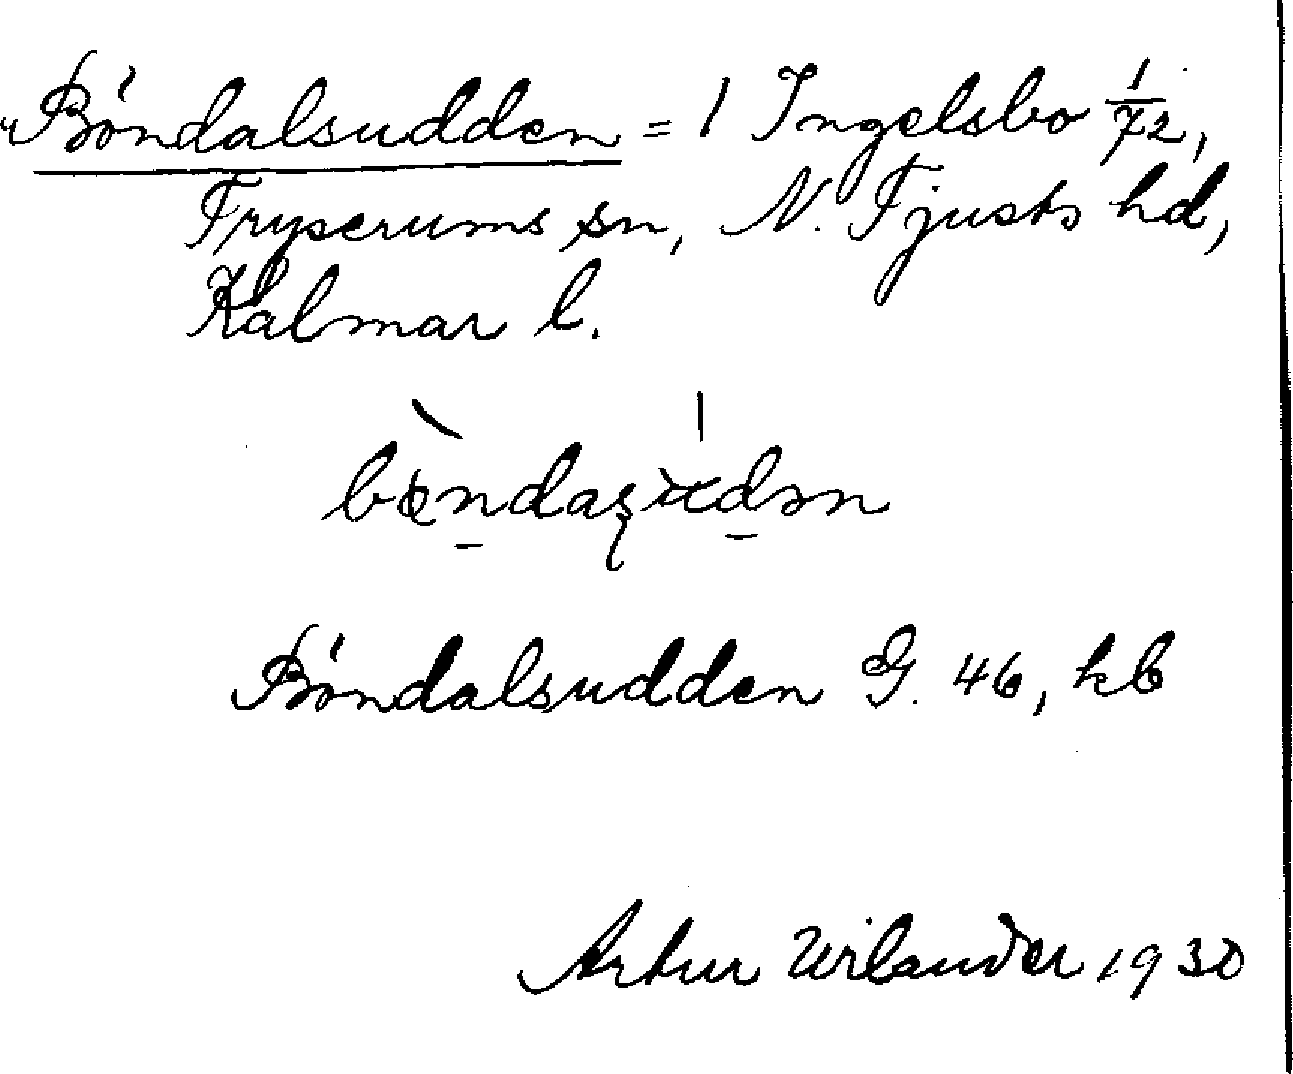 "Böndalsudden = 1 Ingelsbo 1/72,
Tryserums sn, N. Tjusts hd,
Kalmar l.
Böndalsudden G. 46, kb
Artur Wilander 1930